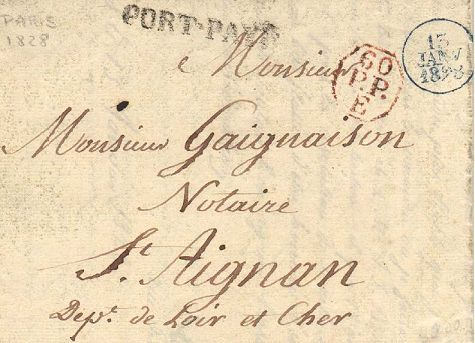 PARIS
1828
PORT-PAYÉ
a Monsieur
60
P.P.
E
13
JANV
1828
Monsieur Gaignaison
Notaire
St. Aignan
Dept. de Loir et Cher